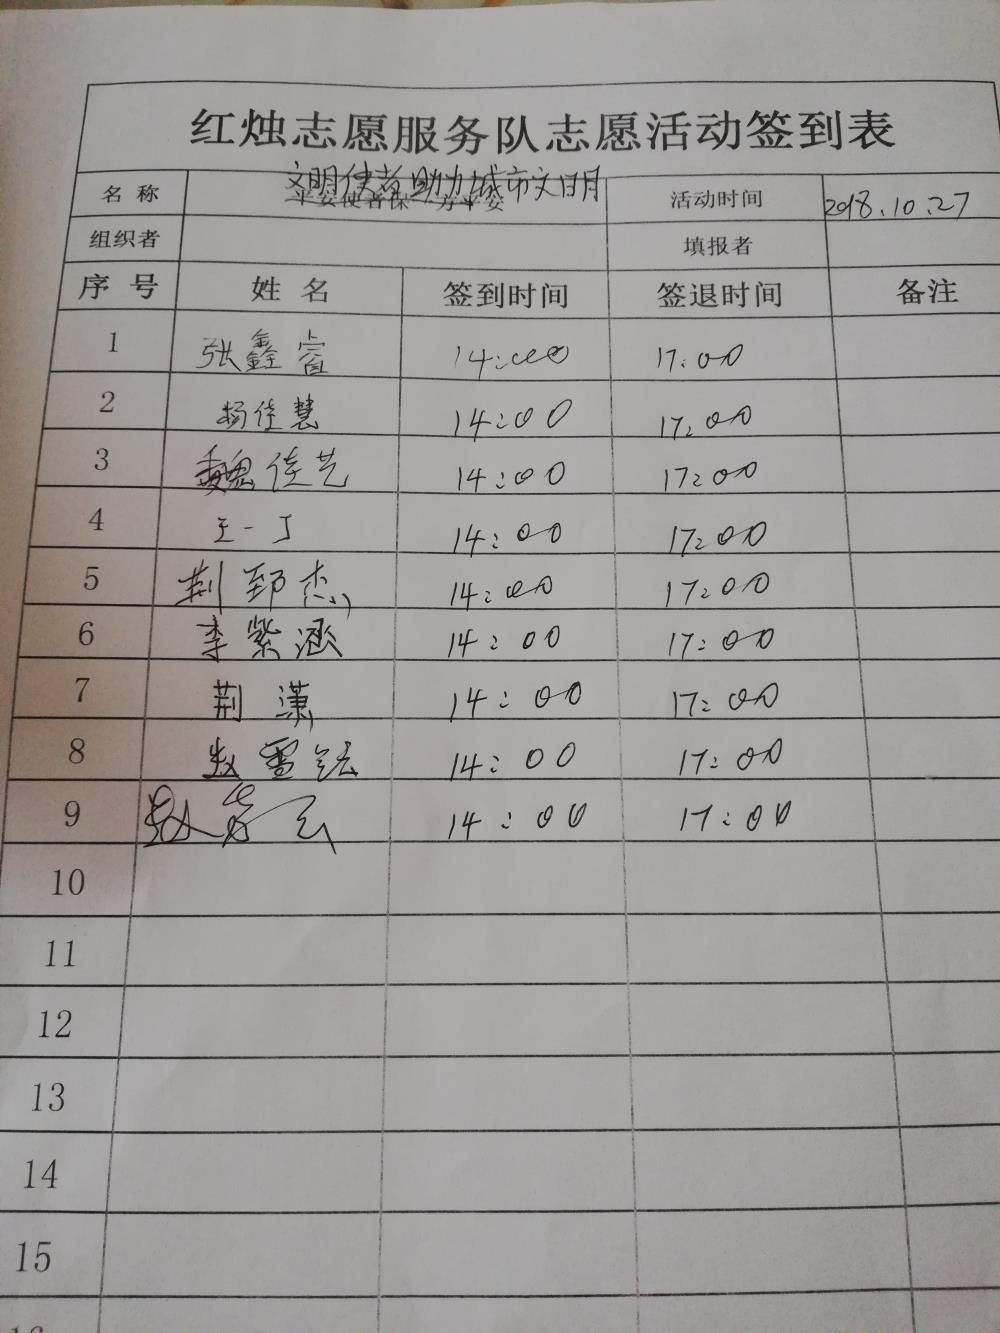 红烛志愿服务队志愿活动签到表
名 称 文明使者助力城市文明 活动时间 2018.10.27
平安使者保一方平安
组织者 填报者
序 号 姓 名 签到时间 签退时间 备注
1 张鑫睿 14:00 17:00
2 杨佳慧 14:00 17:00
3 魏佳艺 14:00 17:00
4 王一丁 14:00 17:00
5 荆郅杰 14:00 17:00
6 李紫涵 14:00 17:00
7 荆潇 14:00 17:00
8 赵雪 14:00 17:00
9 赵 14:00 17:00
10
11
12
13
14
15
16